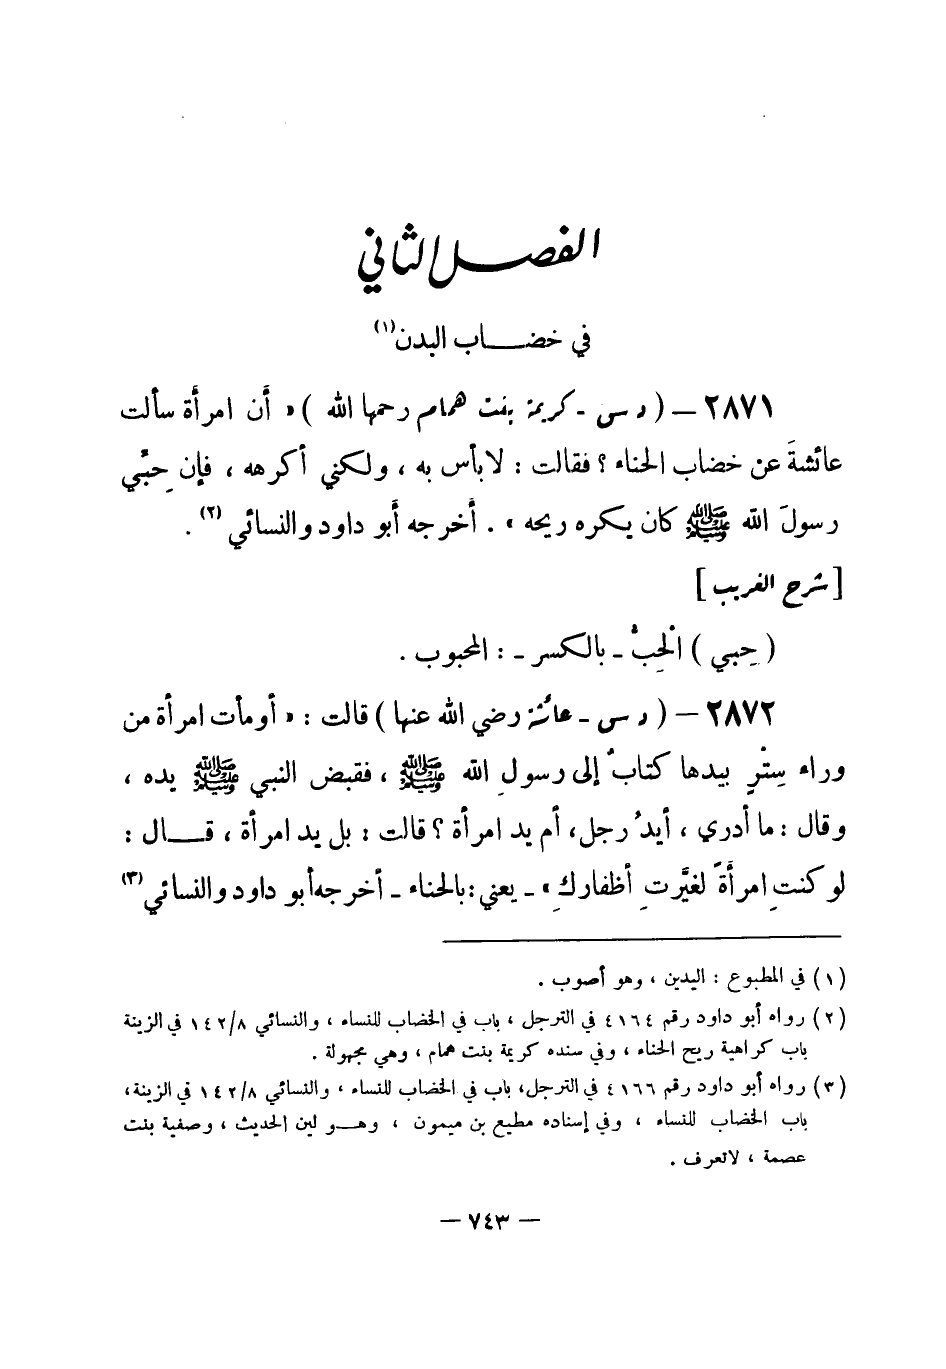 الفصل الثاني
في خضــاب البدن(١)
٢٨٧١ – ( د س - كريمة بنت همام رحمها الله ) « أن امرأة سألت
عائشةَ عن خضاب الحناء ؟ فقالت : لا بأس به ، ولكني أكرهه ، فإن حِبِّي
رسولَ الله ﷺ كان يكره ريحه » . أخرجه أبو داود والنسائي (٢) .
[ شرح الغريب ]
( حِبي ) الْحِبُّ ـ بالكسر ـ : المحبوب .
٢٨٧٢ – ( د س - عائشة رضي الله عنها ) قالت : « أومأت امرأة من
وراء سِتْرٍ بيدها كتابٌ إلى رسولِ الله ﷺ ، فقبض النبي ﷺ يده ،
وقال : ما أدري ، أيدُ رجل ، أم يد امرأة ؟ قالت : بل يد امرأة ، قــال :
لو كنتِ امرأةً لغيَّرتِ أظفاركِ » ـ يعني : بالحناء ـ أخرجه أبو داود والنسائي (٣)
(١) في المطبوع : اليدين ، وهو أصوب .
(٢) رواه أبو داود رقم ٤١٦٤ في الترجل ، باب في الخضاب للنساء ، والنسائي ١٤٢/٨ في الزينة
باب كراهية ريح الحناء ، وفي سنده كريمة بنت همام ، وهي مجهولة .
(٣) رواه أبو داود رقم ٤١٦٦ في الترجل، باب في الخضاب للنساء ، والنسائي ١٤٢/٨ في الزينة،
باب الخضاب للنساء ، وفي إسناده مطيع بن ميمون ، وهــو لين الحديث ، وصفية بنت
عصمة ، لاتعرف .
— ٧٤٣ —